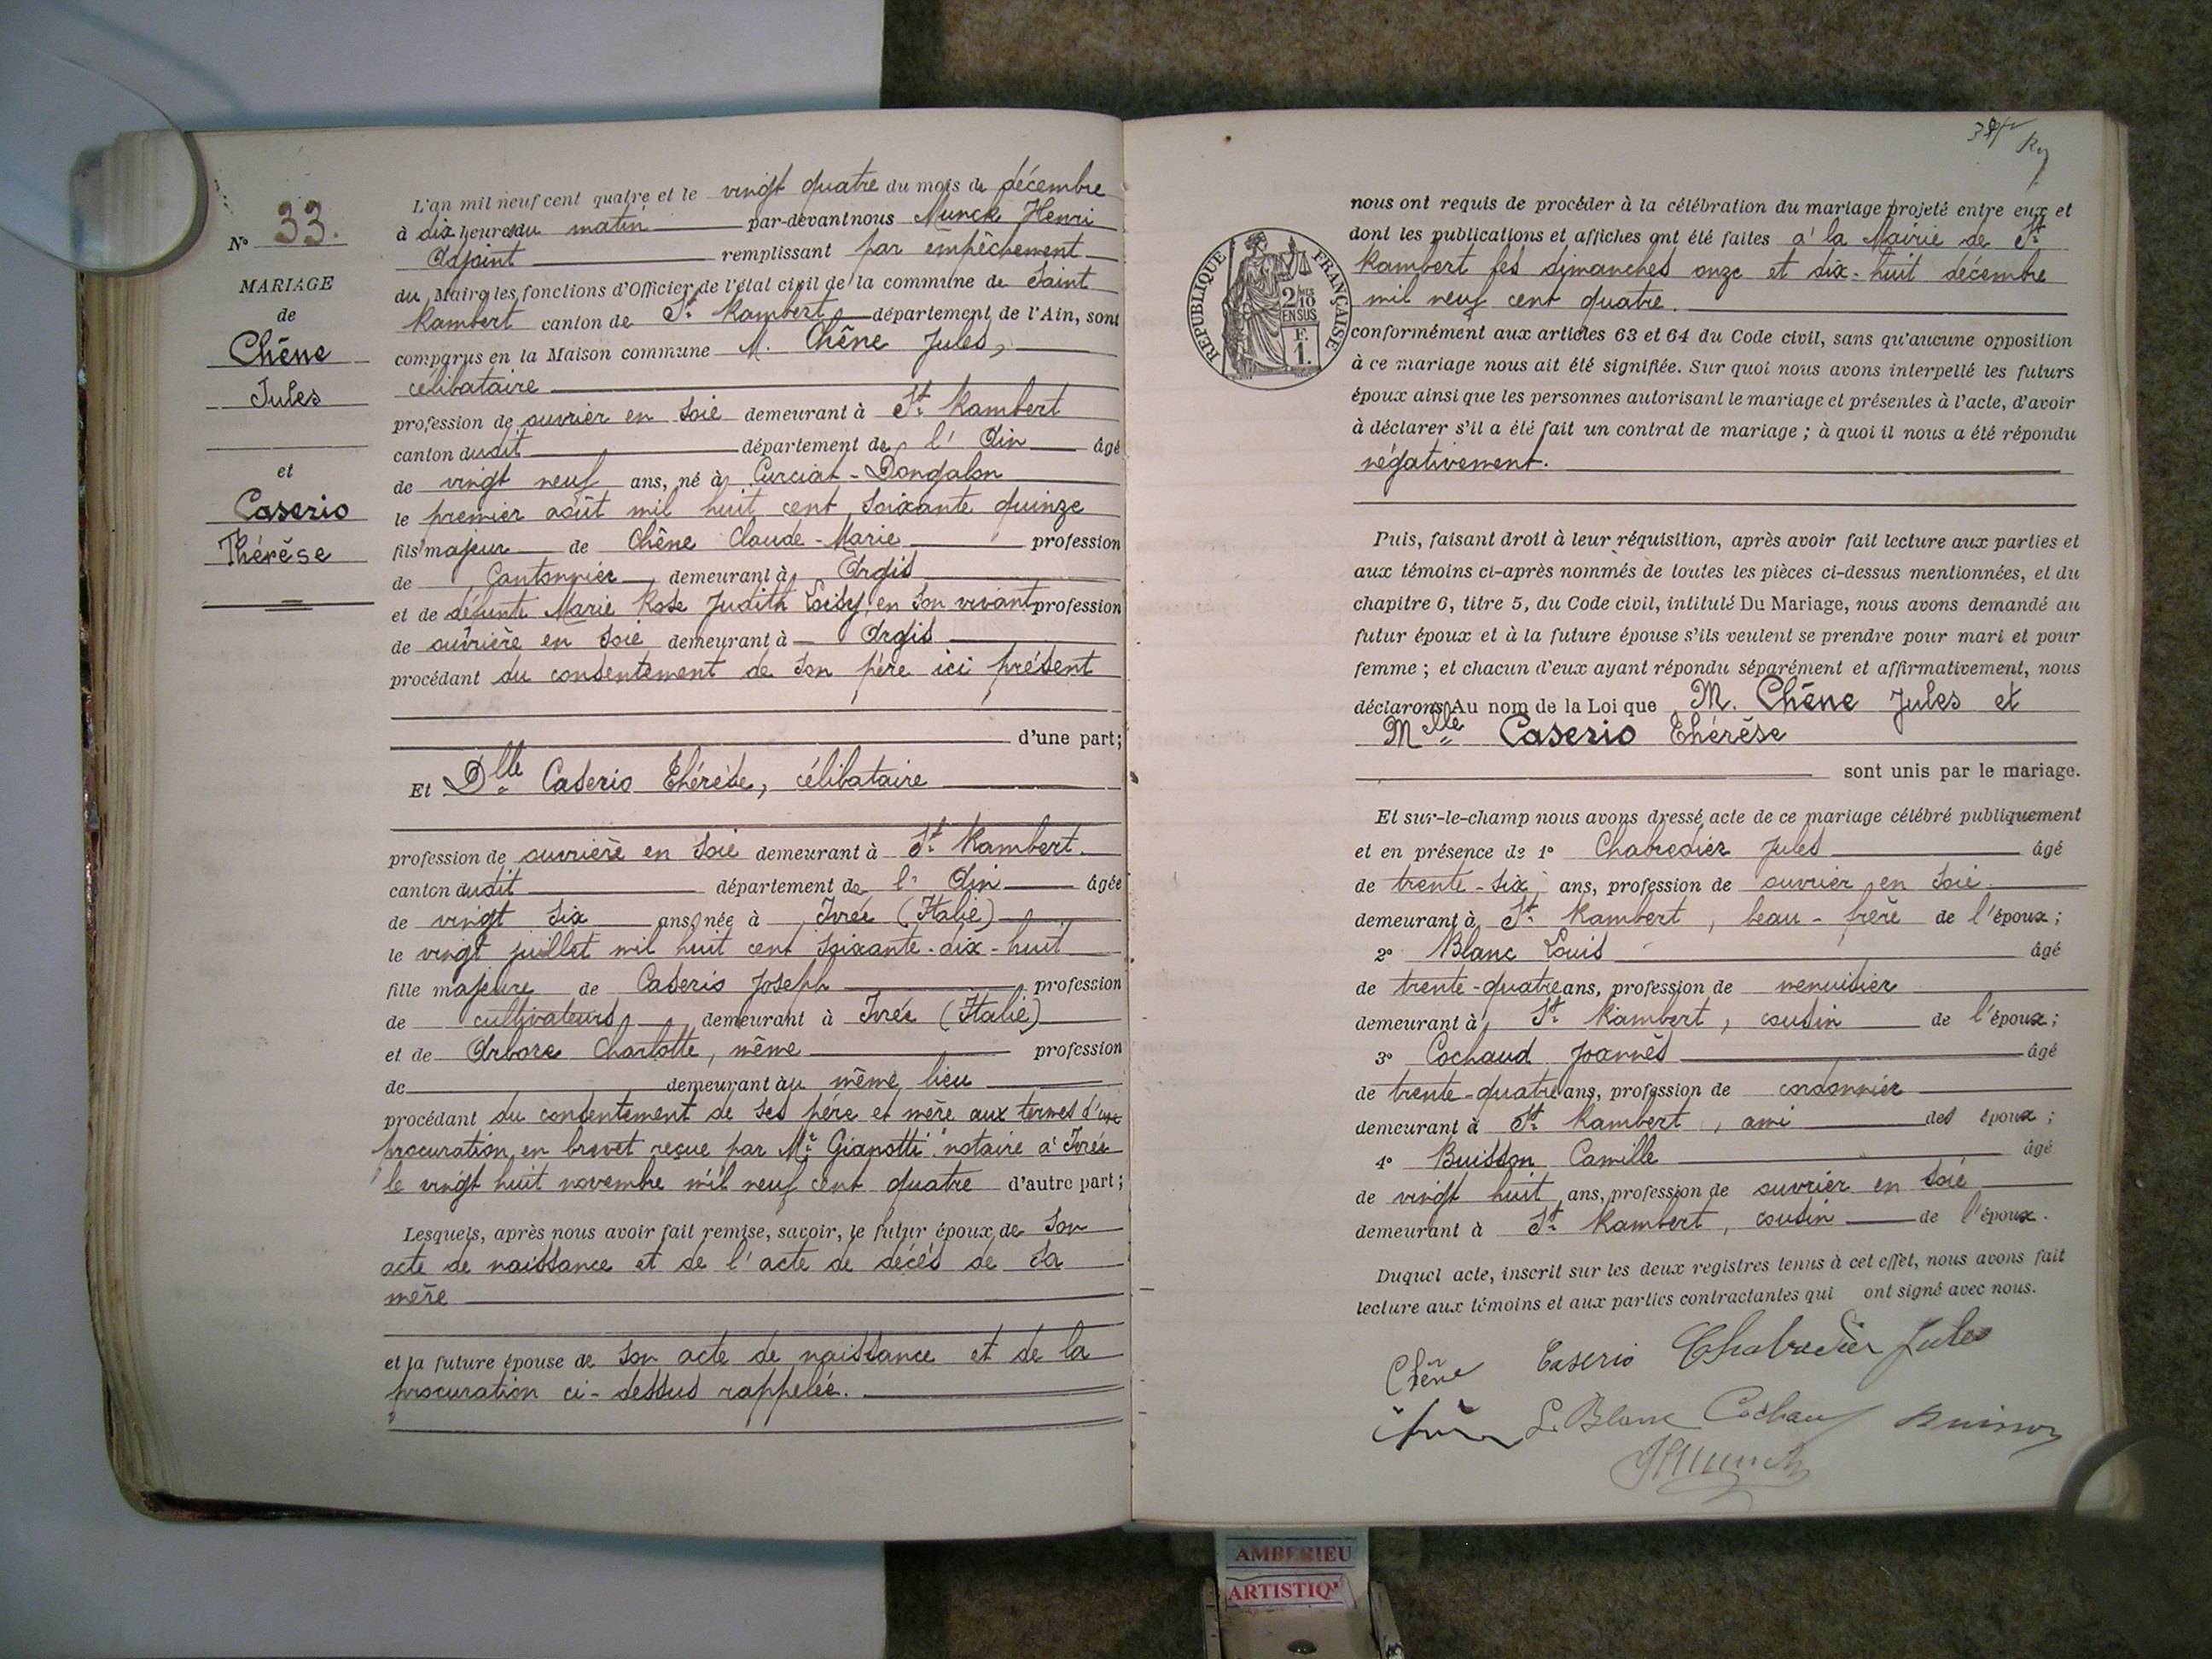 N° 33.
MARIAGE
de
Chêne
Jules
et
Caserio
Thérèse
L'an mil neuf cent quatre et le vingt quatre du mois de décembre
à dix heures du matin par-devant nous Munck Henri
Adjoint remplissant par empêchement
du Maire les fonctions d'Officier de l'état civil de la commune de Saint
Rambert canton de St Rambert département de l'Ain, sont
comparus en la Maison commune M. Chêne Jules,
célibataire
profession de ouvrier en soie demeurant à St Rambert
canton dudit département de l'Ain âgé
de vingt neuf ans, né à Curciat-Dongalon
le premier août mil huit cent soixante quinze
fils majeur de Chêne Claude-Marie profession
de Cantonnier demeurant à Argis
et de défunte Marie Rose Judith Loisy en son vivant profession
de ouvrière en soie demeurant à Argis
procédant du consentement de son père ici présent
d'une part;
Et Dlle Caserio Thérèse, célibataire
profession de ouvrière en soie demeurant à St Rambert.
canton dudit département de l'Ain âgée
de vingt six ans née à Ivrée (Italie)
le vingt juillet mil huit cent soixante-dix-huit
fille majeure de Caserio Joseph profession
de cultivateurs demeurant à Ivrée (Italie)
et de Arbore Charlotte, même profession
de demeurant au même lieu
procédant du consentement de ses père et mère aux termes d'une
procuration en brevet reçue par Me Gianotti notaire à Ivrée
le vingt huit novembre mil neuf cent quatre d'autre part;
Lesquels, après nous avoir fait remise, savoir, le futur époux de son
acte de naissance et de l'acte de décès de sa
mère
et la future épouse de son acte de naissance et de la
procuration ci-dessus rappelée.
RÉPUBLIQUE FRANÇAISE
2/10
EN SUS
F.
1.
nous ont requis de procéder à la célébration du mariage projeté entre eux et
dont les publications et affiches ont été faites à la Mairie de St
Rambert les dimanches onze et dix-huit décembre
mil neuf cent quatre.
conformément aux articles 63 et 64 du Code civil, sans qu'aucune opposition
à ce mariage nous ait été signifiée. Sur quoi nous avons interpellé les futurs
époux ainsi que les personnes autorisant le mariage et présentes à l'acte, d'avoir
à déclarer s'il a été fait un contrat de mariage; à quoi il nous a été répondu
négativement.
Puis, faisant droit à leur réquisition, après avoir fait lecture aux parties et
aux témoins ci-après nommés de toutes les pièces ci-dessus mentionnées, et du
chapitre 6, titre 5, du Code civil, intitulé Du Mariage, nous avons demandé au
futur époux et à la future épouse s'ils veulent se prendre pour mari et pour
femme; et chacun d'eux ayant répondu séparément et affirmativement, nous
déclarons Au nom de la Loi que M. Chêne Jules et
Melle Caserio Thérèse
sont unis par le mariage.
Et sur-le-champ nous avons dressé acte de ce mariage célébré publiquement
et en présence de 1° Chabredier Jules âgé
de trente-six ans, profession de ouvrier en soie.
demeurant à St Rambert, beau-frère de l'époux;
2° Blanc Louis âgé
de trente-quatre ans, profession de menuisier
demeurant à St Rambert, cousin de l'époux;
3° Cochaud Joannès âgé
de trente-quatre ans, profession de cordonnier
demeurant à St Rambert, ami des époux;
4° Buisson Camille âgé
de vingt huit ans, profession de ouvrier en soie
demeurant à St Rambert, cousin de l'époux.
Duquel acte, inscrit sur les deux registres tenus à cet effet, nous avons fait
lecture aux témoins et aux parties contractantes qui ont signé avec nous.
Chêne Caserio Chabredier Jules
L. Blanc Cochaud Buisson
HMunck
AMBERIEU
ARTISTIQ